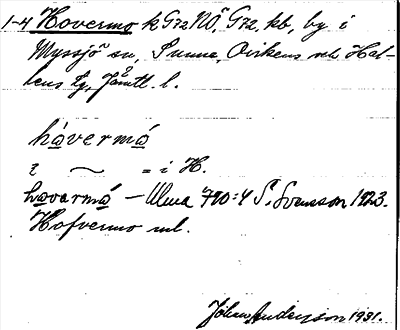 1-4 Hovermo k G72 NÖ, G72, kb, by i
Myssjö sn, Sunne, Ovikens o. Hal-
lens tg, Jämtl. l.
hàvermå
i ~ = i H.
havarmå – Ulma 790:4 S. Svensson 1923.
Hofvermo ml.
Johan Anderson 1931.